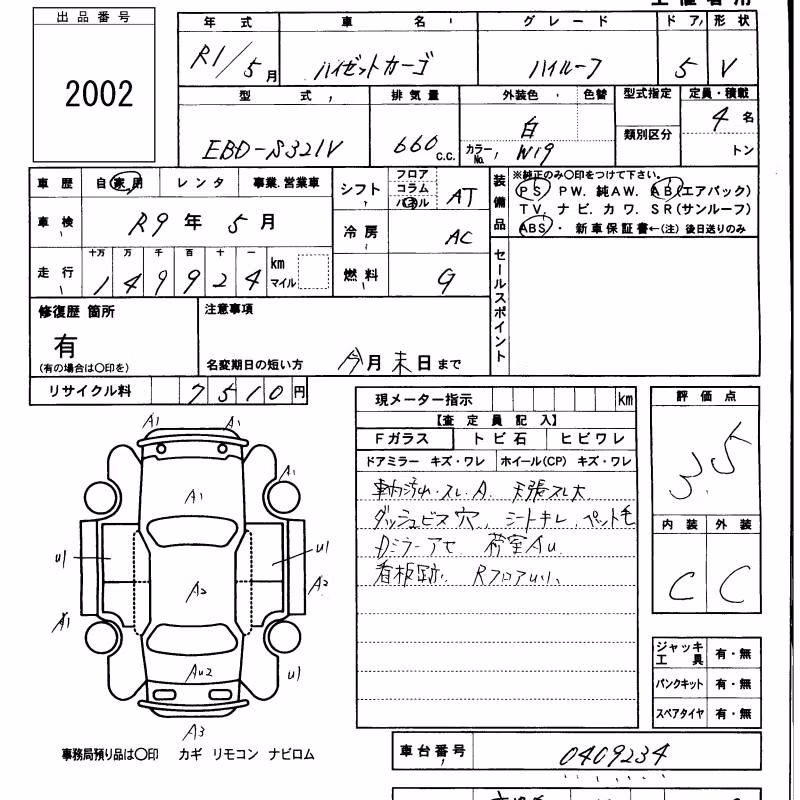 出品番号
2002
年式 車名 グレード ドア 形状
R1/5月 ハイゼットカーゴ ハイルーフ 5 V
型式 排気量 外装色 色替 型式指定 定員・積載
EBD-S321V 660 c.c. 白 類別区分 4名
カラーNo. W19 トン
車歴 自家用 レンタ 事業.営業車
車検 R9年5月
走行 十万 万 千 百 十 一
149924 km マイル
シフト フロア コラム パネル AT
冷房 AC
燃料 G
装備品
※純正のみ○印をつけて下さい。
PS PW. 純AW. AB(エアバック)
TV. ナビ. カワ. SR(サンルーフ)
ABS. 新車保証書←(注) 後日送りのみ
セールスポイント
修復歴 箇所
有
(有の場合は○印を)
注意事項
名変期日の短い方 今月末日まで
リサイクル料 7510円
現メーター指示 km
【査定員記入】
Fガラス トビ石 ヒビワレ
ドアミラー キズ・ワレ ホイール(CP) キズ・ワレ
車内汚れ・スレ.A. 天張スレ大
ダッシュビス穴. シートキレ. ペット毛
Dミラーアセ 荷室Au
看板跡. RフロアU小.
評価点
3.5
内装 外装
C C
ジャッキ工具 有・無
パンクキット 有・無
スペアタイヤ 有・無
A1 A1
A1 A1
U1 U1
A2 A2
A1
AU2 U1
A3
事務局預り品は○印 カギ リモコン ナビロム
車台番号 0409234